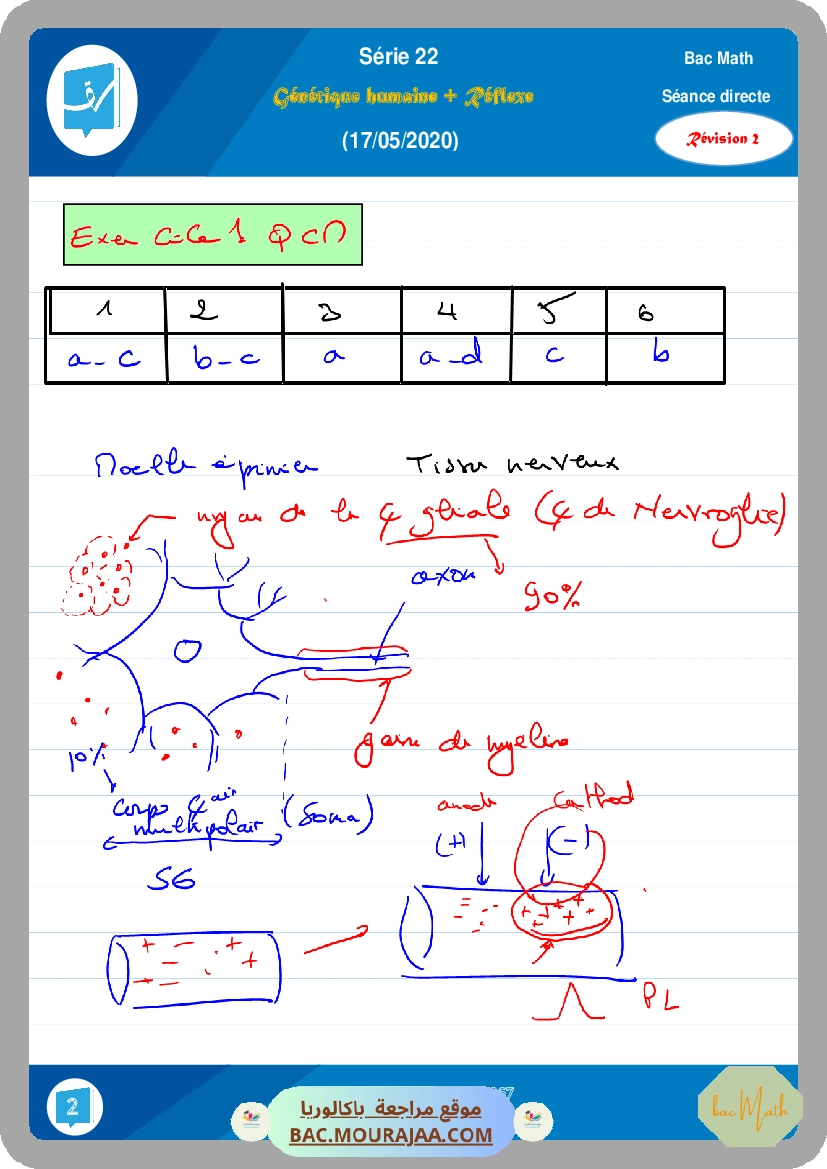 Série 22
Bac Math
Génétique humaine + Réflexe
Séance directe
(17/05/2020)
Révision 2
Exercice 1 QCM
1 2 3 4 5 6
a-c b-c a a-d c b
Moelle épinier Tissu nerveux
noyau de la ȼ gliale (ȼ de Nevroglie)
axon
90%
10%
gaine de myeline
corps ȼair
multipolair (Soma)
anode cathod
(+) (-)
SG
+ - + - +
- - - + + + + + +
PL
2
موقع مراجعة باكالوريا
BAC.MOURAJAA.COM
bac Math